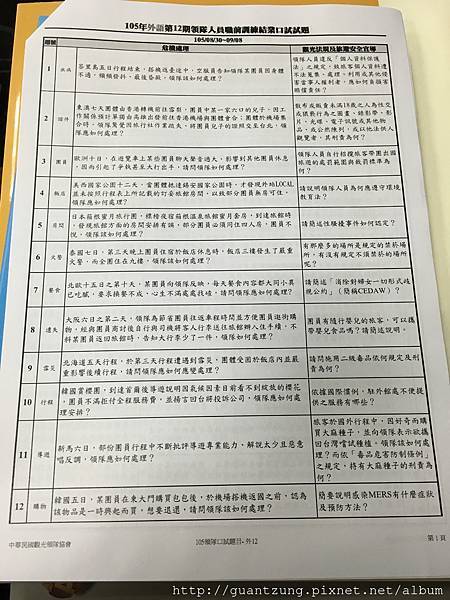 105年外語第12期領隊人員職前訓練結業口試試題
105/08/30~09/08
題號
危機處理
觀光法規及旅遊安全宣導
1
疾病
峇里島五日行程結束,搭機返臺途中,空服員告知領隊某團員因身體
不適,頻頻發抖,最後昏厥,領隊該如何處理?
領隊人員違反「個人資料保護
法」之規定,致旅客個人資料遭
不法蒐集、處理、利用或其他侵
害當事人權利者,應如何負損害
賠償責任?
2
證件
東澳七天團體由香港轉機前往雪梨,團員中某一家六口的兒子,因工
作關係預計單獨由高雄出發前往香港機場與團體會合;團體於機場集
合時,領隊驚覺因旅行社作業疏失,將團員兒子的證照交至台北,領
隊應如何處理?
散布或販賣未滿18歲之人為性交
或猥褻行為之圖畫、錄影帶、影
片、光碟、電子訊號或其他物
品,或公然陳列,或以他法供人
觀覽者,其刑責為何?
3
團員
歐洲十日,在遊覽車上某些團員聊天聲音過大,影響到其他團員休息
,因而引起了爭執甚至大打出手,請問領隊如何處理?
領隊人員自行招攬旅客帶團出國
旅遊的處罰範圍與裁罰標準為
何?
4
飯店
美西國家公園十二天,當團體抵達錫安國家公園時,才發現外站LOCAL
並未按照行程表上所記載的訂妥旅館房間,以致部分團員無房可住,
領隊應如何處理?
請說明領隊人員為何應遵守環境
教育法?
5
房間
日本箱根蜜月旅行團,標榜夜宿箱根溫泉旅館蜜月套房,到達旅館時
,發現旅館方面的房間安排有誤,部分團員必須同住四人房,團員不
悅,領隊該如何處理?
請簡述性騷擾事件如何認定?
6
火警
泰國七日,第三天晚上團員住宿於飯店休息時,飯店三樓發生了嚴重
火警,而全團住在九樓,領隊該如何處理?
有那麼多的場所是規定的禁菸場
所,有沒有規定不須禁菸的場所
呢?
7
餐食
北歐十五日的第十天,某團員向領隊反映,每天餐食內容都大同小異
已吃膩,要求換要不成,心生不滿處處找碴,請問領隊應如何處理?
請簡述「消除對婦女一切形式歧
視公約」(簡稱CEDAW)?
8
遺失
大阪六日之第二天,領隊為節省團員往返車程時間並方便團員逛街購
物,經與團員商討後自行與司機將客人行李送往旅館辦入住手續,不
料某團員返回旅館時,告知大行李少了一件,領隊如何處理?
團員有隨行嬰兒的旅客,可以攜
帶嬰兒食品嗎?請簡述說明。
9
雪災
北海道五天行程,於第三天行程遭遇到雪災,團體受困於飯店內並嚴
重影響後續行程,請問領隊應如何應變處理?
請問施用二級毒品依何規定及刑
責為何?
10
行程
韓國賞櫻團,到達首爾後導遊說明因氣候因素目前看不到綻放的櫻花
,團員不滿拒付全程服務費,並揚言回台將投訴公司,領隊應如何處
理安排?
依據國際慣例,駐外館處不便提
供之服務有哪些?
11
導遊
新馬六日,部份團員行程中不斷批評導遊專業能力、解說太少且惡意
唱反調,領隊應如何處理?
旅客於國外行程中,因好奇而購
買大麻種子,並向領隊表示欲攜
回台灣嚐試種植。領隊該如何處
理?而依「毒品危害防制條例」
之規定,持有大麻種子的刑責為
何?
12
購物
韓國五日,某團員在東大門購買包包後,於機場搭機返國之前,認為
該物品是一時興起而買,想要退還,請問領隊該如何處理?
簡要說明感染MERS有什麼症狀
及預防方法?
中華民國觀光領隊協會
105領隊口試題目-外12
第1頁
http://guantzung.pixnet.net/album